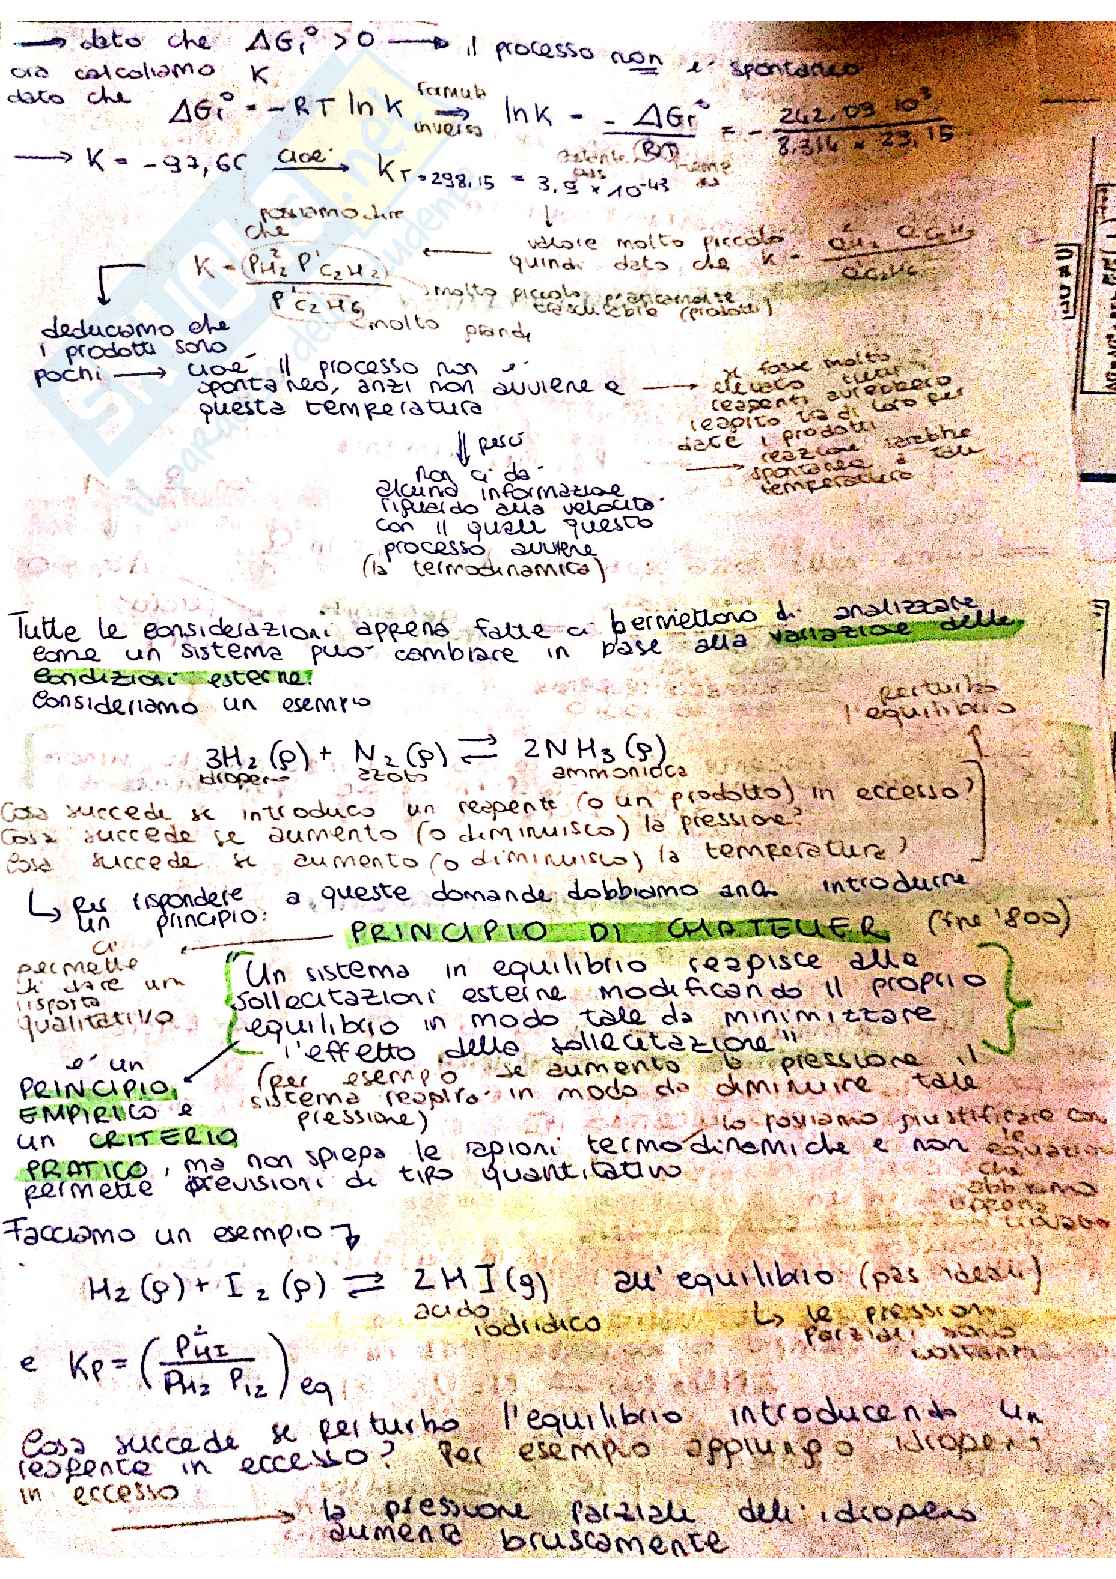 → dato che ΔGr° > 0 → il processo non è spontaneo
ora calcoliamo K
dato che ΔGr° = -RT ln K ⇒ formula inversa ln K = - ΔGr° / RT = - 242,09 10³ / 8.314 × 29,15
→ K = -97,66 cioè → K T=298,15 = 3,9 × 10-43
possiamo dire che
valore molto piccolo
quindi dato che K =
K = (P²H2 P¹C2H2) / P¹C2H6
molto piccolo praticamente
(prodotti)
molto grande
deduciamo che
i prodotti sono
pochi → cioè il processo non è
spontaneo, anzi non avviene a
questa temperatura
se fosse molto
elevato
reagenti avrebbero
reagito tra di loro per
dare i prodotti
→ reazione sarebbe
spontanea a tale
temperatura
⇓ però
non ci dà
alcuna informazione
riguardo alla velocità
con il quale questo
processo avviene
(la termodinamica)
Tutte le considerazioni appena fatte ci permettono di analizzare
come un sistema può cambiare in base alla variazione delle
condizioni esterne.
Consideriamo un esempio
perturbo
l'equilibrio
3H2 (g) + N2 (g) ⇌ 2NH3 (g)
idrogeno azoto ammoniaca
Cosa succede se introduco un reagente (o un prodotto) in eccesso?
Cosa succede se aumento (o diminuisco) la pressione?
Cosa succede se aumento (o diminuisco) la temperatura?
↳ per rispondere a queste domande dobbiamo introdurre
un principio:
PRINCIPIO DI CHATELIER (fine '800)
ci
permette
di dare una
risposta
qualitativa
"Un sistema in equilibrio reagisce alle
sollecitazioni esterne modificando il proprio
equilibrio in modo tale da minimizzare
l'effetto della sollecitazione"
(per esempio se aumento la pressione il
sistema reagirà in modo da diminuire tale
pressione)
è un
PRINCIPIO
EMPIRICO e
un CRITERIO
PRATICO, ma non spiega le ragioni termodinamiche e non
permette previsioni di tipo quantitativo
lo possiamo giustificare con
le equazioni
che
abbiamo
appena
trovato
Facciamo un esempio
H2 (g) + I2 (g) ⇌ 2HI (g) all'equilibrio (gas ideali)
acido
iodridico
↳ le pressioni
parziali sono
costanti
e Kp = (P²HI / PH2 PI2) eq
Cosa succede se perturbo l'equilibrio introducendo un
reagente in eccesso? Per esempio aggiungo idrogeno
in eccesso
→ la pressione parziale dell'idrogeno
aumenta bruscamente